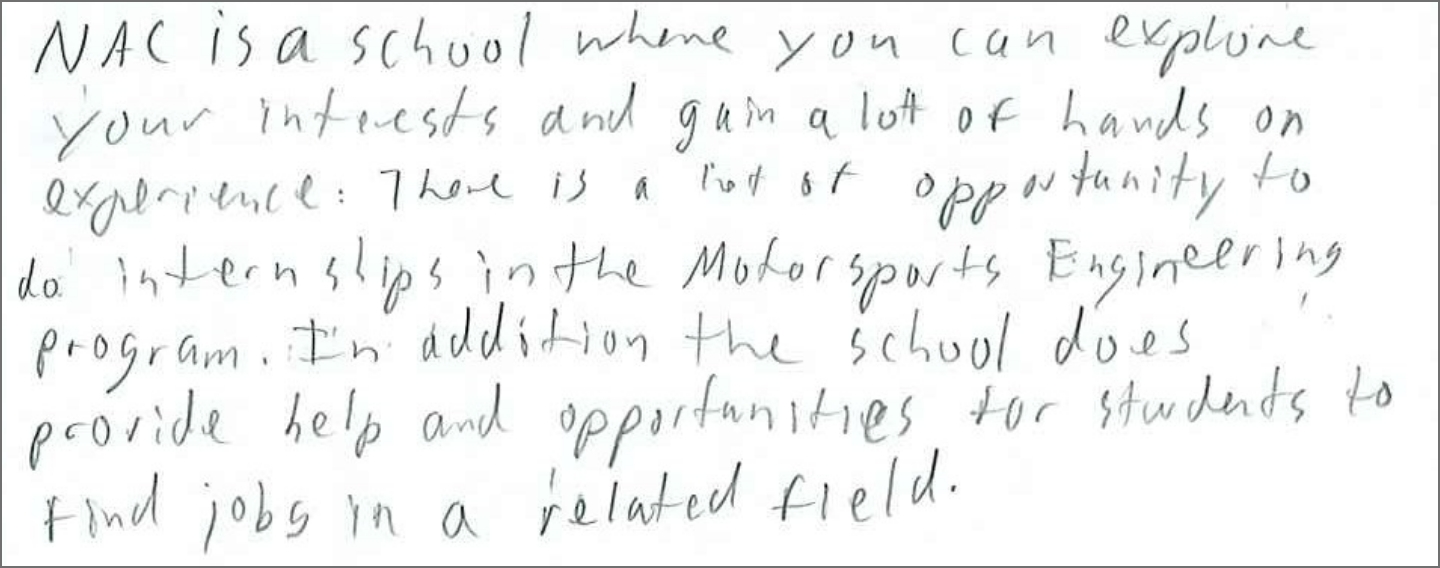 NAC is a school where you can explore
your interests and gain a lot of hands on
experience. There is a lot of opportunity to
do internships in the Motorsports Engineering
program. In addition the school does
provide help and opportunities for students to
find jobs in a related field.